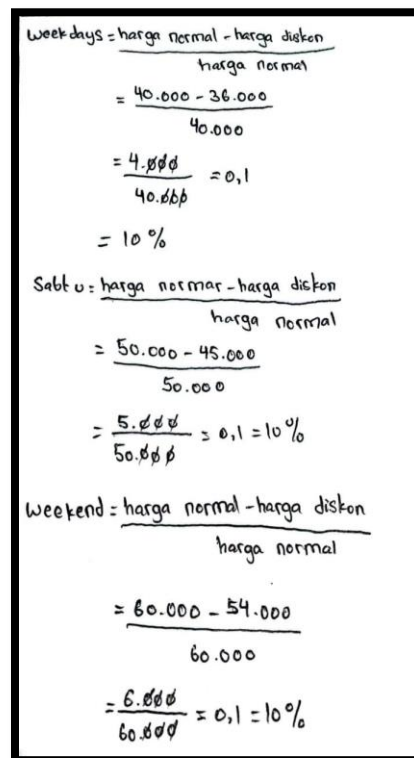 weekdays = harga normal - harga diskon
harga normal
= 40.000 - 36.000
40.000
= 4.000 = 0,1
40.000
= 10 %
Sabtu = harga normar - harga diskon
harga normal
= 50.000 - 45.000
50.000
= 5.000 = 0,1 = 10 %
50.000
weekend = harga normal - harga diskon
harga normal
= 60.000 - 54.000
60.000
= 6.000 = 0,1 = 10 %
60.000